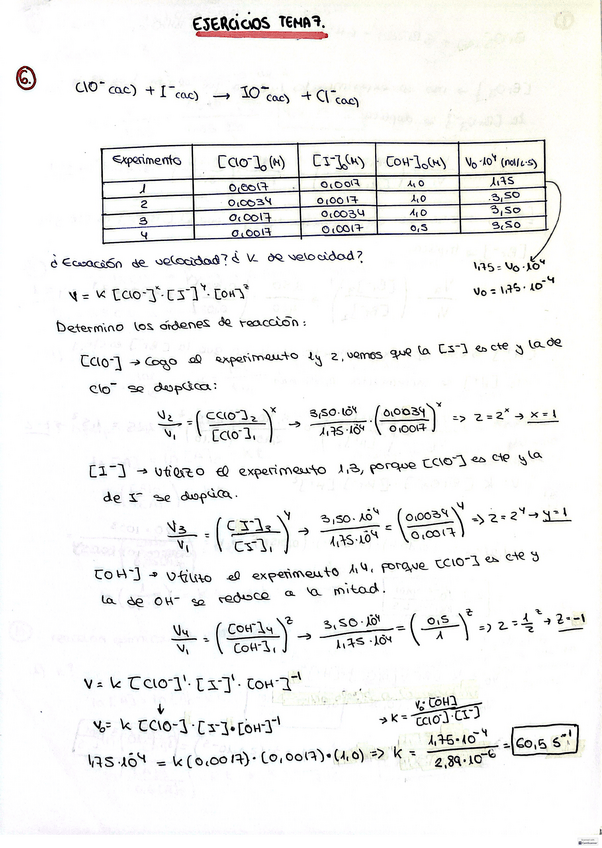 EJERCICIOS TEMA 7.
6.
ClO⁻(ac) + I⁻(ac) → IO⁻(ac) + Cl⁻(ac)
Experimento [ClO⁻]₀(M) [I⁻]₀(M) [OH⁻]₀(M) V₀·10⁴ (mol/L·s)
1 0,0017 0,0017 1,0 1,75
2 0,0034 0,0017 1,0 3,50
3 0,0017 0,0034 1,0 3,50
4 0,0017 0,0017 0,5 3,50
¿Ecuación de velocidad? ¿K de velocidad?
1,75 = V₀·10⁴
V₀ = 1,75·10⁻⁴
V = K [ClO⁻]ˣ·[I⁻]ʸ·[OH]ᶻ
Determino los órdenes de reacción:
[ClO⁻] → Cogo el experimento 1 y 2, vemos que la [I⁻] es cte y la de
ClO⁻ se duplica:
V₂/V₁ = ([ClO⁻]₂/[ClO⁻]₁)ˣ → 3,50·10⁻⁴/1,75·10⁻⁴ · (0,0034/0,0017)ˣ => 2=2ˣ → x=1
[I⁻] → Utilizo el experimento 1,3, porque [ClO⁻] es cte y la
de I⁻ se duplica.
V₃/V₁ = ([I⁻]₃/[I⁻]₁)ʸ → 3,50·10⁻⁴/1,75·10⁻⁴ = (0,0034/0,0017)ʸ => 2=2ʸ → y=1
[OH⁻] → Utilizo el experimento 1,4, porque [ClO⁻] es cte y
la de OH⁻ se reduce a la mitad.
V₄/V₁ = ([OH⁻]₄/[OH⁻]₁)ᶻ → 3,50·10⁻⁴/1,75·10⁻⁴ = (0,5/1)ᶻ => 2=1/2ᶻ → z=-1
V = K [ClO⁻]¹·[I⁻]¹·[OH⁻]⁻¹
↓
V₀ = K [ClO⁻]·[I⁻]·[OH⁻]⁻¹ → K = V₀·[OH]/[ClO⁻]·[I⁻]
1,75·10⁻⁴ = K(0,0017)·(0,0017)·(1,0) => K = 1,75·10⁻⁴/2,89·10⁻⁶ = 60,5 s⁻¹
1